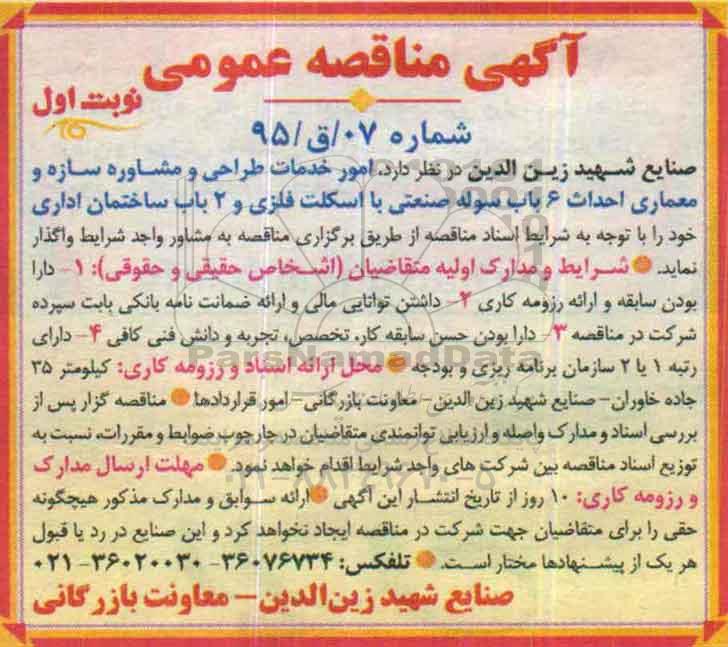 آگهی مناقصه عمومی
نوبت اول
شماره ۰۷/ق/۹۵
صنایع شهید زین الدین در نظر دارد، امور خدمات طراحی و مشاوره سازه و
معماری احداث ۶ باب سوله صنعتی با اسکلت فلزی و ۲ باب ساختمان اداری
خود را با توجه به شرایط اسناد مناقصه از طریق برگزاری مناقصه به مشاور واجد شرایط واگذار
نماید. شرایط و مدارک اولیه متقاضیان (اشخاص حقیقی و حقوقی): ۱- دارا
بودن سابقه و ارائه رزومه کاری ۲- داشتن توانایی مالی و ارائه ضمانت نامه بانکی بابت سپرده
شرکت در مناقصه ۳- دارا بودن حسن سابقه کار، تخصص، تجربه و دانش فنی کافی ۴- دارای
رتبه ۱ یا ۲ سازمان برنامه ریزی و بودجه محل ارائه اسناد و رزومه کاری: کیلومتر ۳۵
جاده خاوران- صنایع شهید زین الدین- معاونت بازرگانی- امور قراردادها مناقصه گزار پس از
بررسی اسناد و مدارک واصله و ارزیابی توانمندی متقاضیان در چارچوب ضوابط و مقررات، نسبت به
توزیع اسناد مناقصه بین شرکت های واجد شرایط اقدام خواهد نمود. مهلت ارسال مدارک
و رزومه کاری: ۱۰ روز از تاریخ انتشار این آگهی ارائه سوابق و مدارک مذکور هیچگونه
حقی را برای متقاضیان جهت شرکت در مناقصه ایجاد نخواهد کرد و این صنایع در رد یا قبول
هر یک از پیشنهادها مختار است. تلفکس: ۳۶۰۷۶۷۳۴- ۳۶۰۲۰۰۳۰- ۰۲۱
صنایع شهید زین‌الدین- معاونت بازرگانی
ParsNamadData